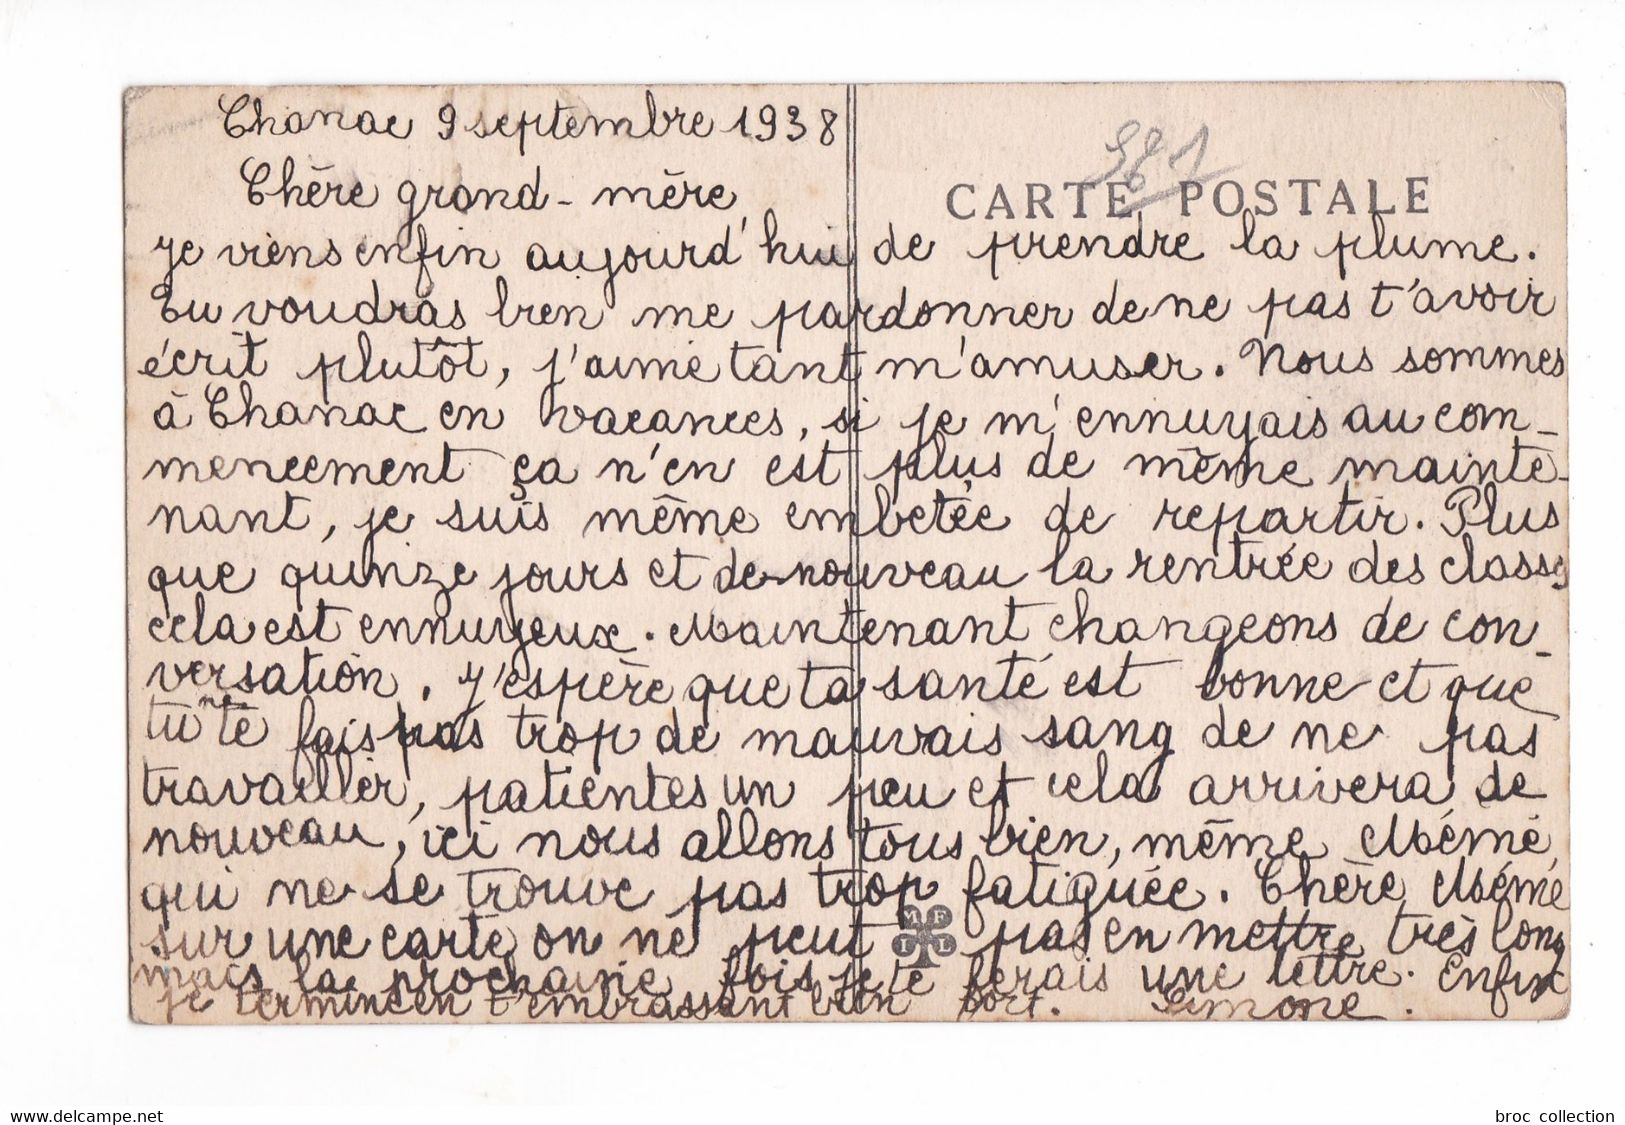 Chanac 9 septembre 1938
CARTE POSTALE
Chère grand-mère,
je viens enfin aujourd'hui de prendre la plume.
Tu voudras bien me pardonner de ne pas t'avoir
écrit plutôt, j'aime tant m'amuser. Nous sommes
à Chanac en vacances, si je m'ennuyais au com-
mencement ça n'en est plus de même mainte-
nant, je suis même embetée de repartir. Plus
que quinze jours et de nouveau la rentrée des classes
cela est ennuyeux. Maintenant changeons de con-
versation. J'espère que ta santé est bonne et que
tu ne te fais pas trop de mauvais sang de ne pas
travailler, patientes un peu et cela arrivera de
nouveau, ici nous allons tous bien, même Mémé,
qui ne se trouve pas trop fatiguée. Chère Mémé
sur une carte on ne peut pas en mettre très long
mais la prochaine fois je te ferais une lettre. Enfin
je termine en t'embrassant bien fort. Simone.
M F I L
delcampe.net
broc collection